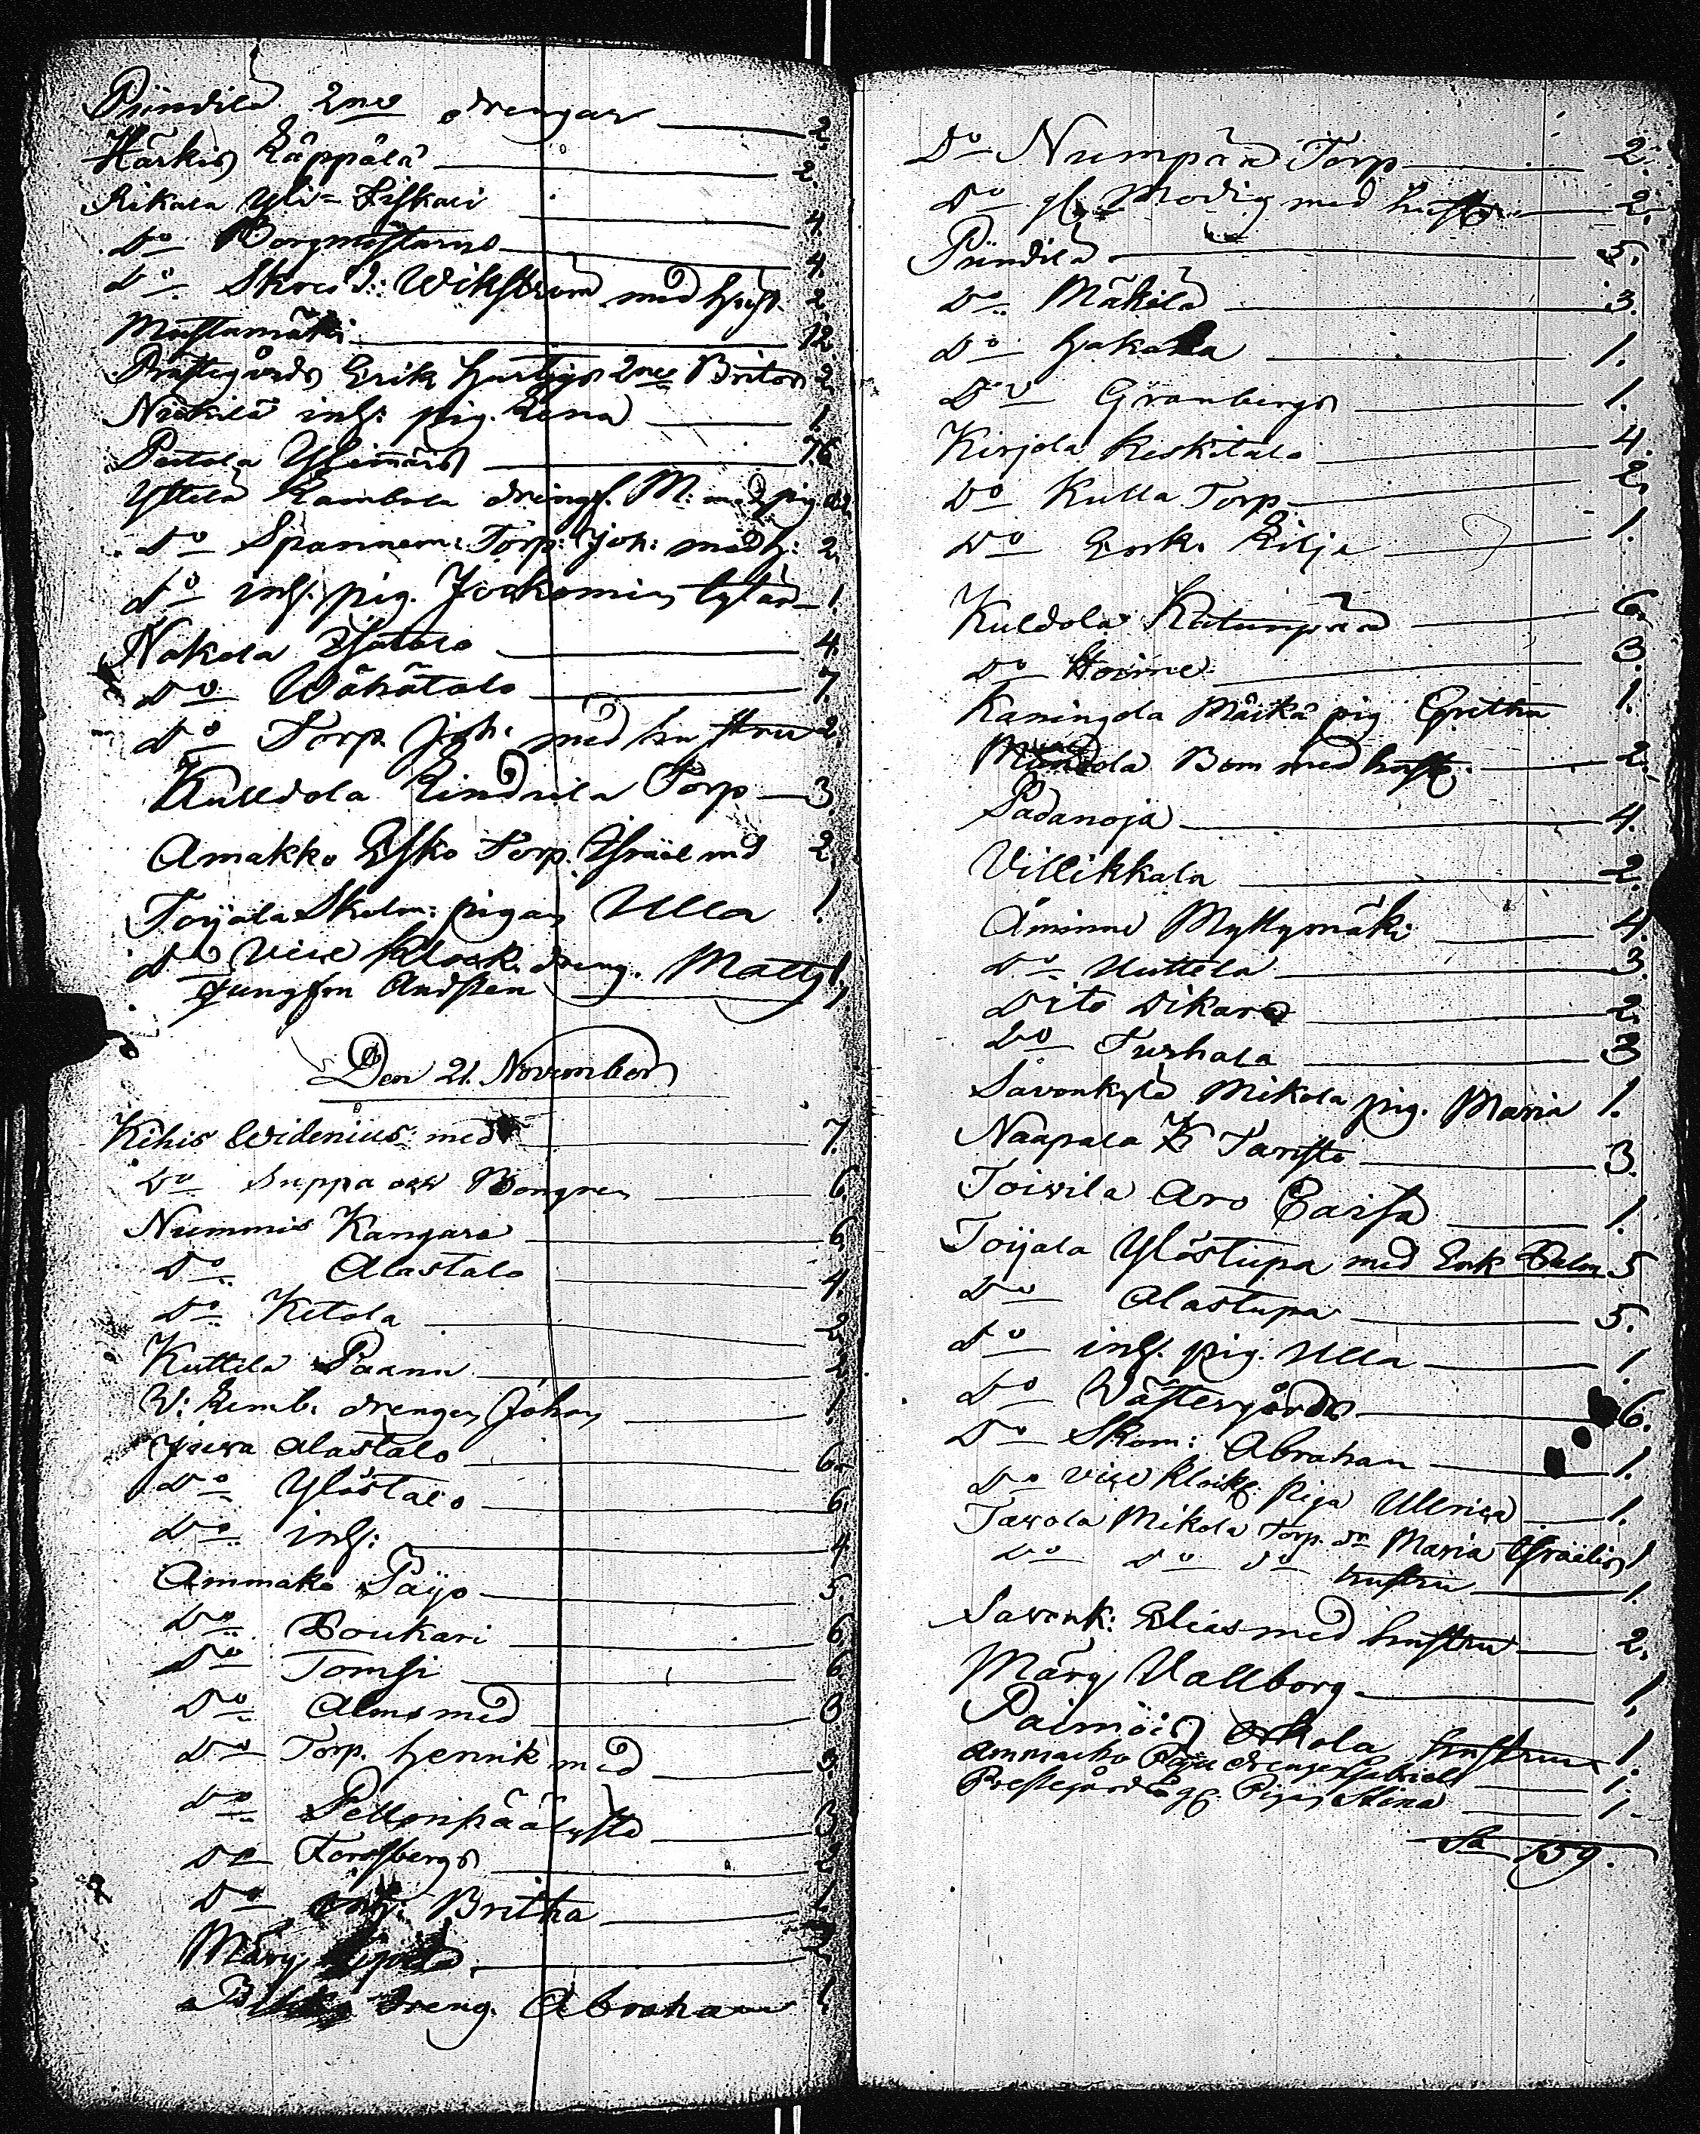 Pündilä 2ne drengar 2.
Härkis Käppälä 2.
Rikala Yli-Fiskali 4.
Do Borgmästares 4.
Do Skred: Wikström med hust. 2.
Mustamäki 12.
Prästegårds Erik Hartigs 2ne Britor 2.
Nickilä inh: pig. Lena 1.
Pertola 7.
Ylhela drengs. M: med pig. 2.
Do Torp: Joh: med h: 2.
Do inh. pig. 1.
Nokola Isotalo 4.
Do Wähätalo 7.
Do Torp. Joh. med hustru 2.
Kulldola Torp 3.
Amakko Esko Torp. Israel md 2.
Toijala Skolm: pigan Ulla 1.
Do Vice Klock. dreng. Matts 1.
Jungfru 1.
Den 21. November
Kihis Widenius med 7.
Do Suppa och Bongren 6.
Nummis Kangare 6.
Do Alastalo 4.
Do Ketola 2.
Kuttila Paanu 2.
W: Lemb. drengen Johan 1.
Alastalo 6.
Do Ylöstalo 6.
Do inh: 4.
Ammako Päijö 5.
Do Boukari 6.
Do Tomsi 6.
Do Alms med 8.
Do Torp. Henrik med 3.
Do Pellonpää 3.
Do Forssbergs 2.
Do inh: Britha 1.
Märy 2.
dreng. Abraham 1.
Do Numpää Torp 2.
Do Modig med hustr. 2.
Pündilä 5.
Do Mäkilä 3.
Do Hakala 1.
Do Granbergs 1.
Kirjola Keskitalo 4.
Do Kulla Torp 2.
Do Enk. Lilja 1.
Kuldola Katumpää 6.
Do 3.
Kaningola Märkä pig Gretha 1.
med hustr. 2.
Padanoja 4.
Villikkala 2.
Åminne Myllymäki 4.
Do Uuttela 3.
Dito Vikare 2.
Do Turhala 3
Savonkylä Mikola pig. Maria 1.
Naapala K Taristo 3.
Toivila Aro Caisa 1.
Toijala Ylöstupa med Enk 5
Do Alastupa 5.
Do inh. pig. Ulla 1
Do Wästergårds 6.
Do Skom: Abraham 1.
Do vice klock. Piga Ulrica 1.
Tavola Mikola Torp. Dr Maria Israelis 1
Do Do Do hustru 1.
Savonk: Elias med hustru 2.
Märy Vallborg 1.
Paimöis hustru 1.
Ammacko Päijö drengen Gabriel 1.
Prestegårds Pigan Stina 1
Sa 159.